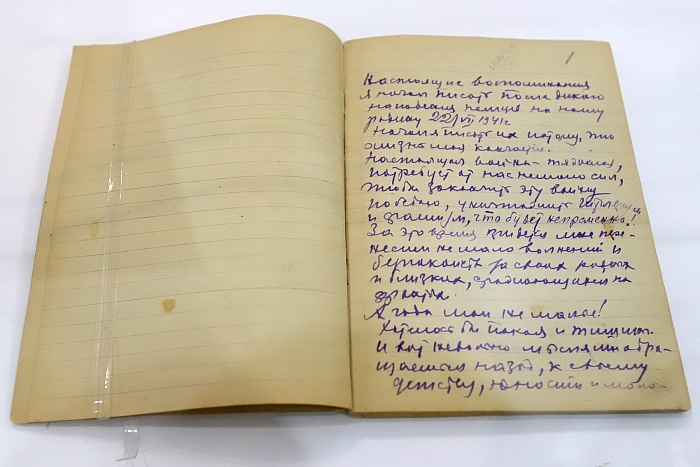 1
Настоящие воспоминания
я начал писать после дикого
нападения немцев на нашу
родину 22/VI 1941 г.
Начал писать их потому, что
жизнь моя кончается.
Настоящая война – тяжелая,
потребует от нас немало сил,
чтобы закончить эту войну
победою, уничтожить Гитлера
и фашизм, что будет непременно!
За это время придется мне пере-
нести не мало волнений и
беспокойств за своих родных
и близких, сражающихся на
фронтах.
А года мои не малые!
Хотелось бы покоя и тишины.
И вот невольно мыслями обра-
щаешься назад, к своему
детству, юности и моло-